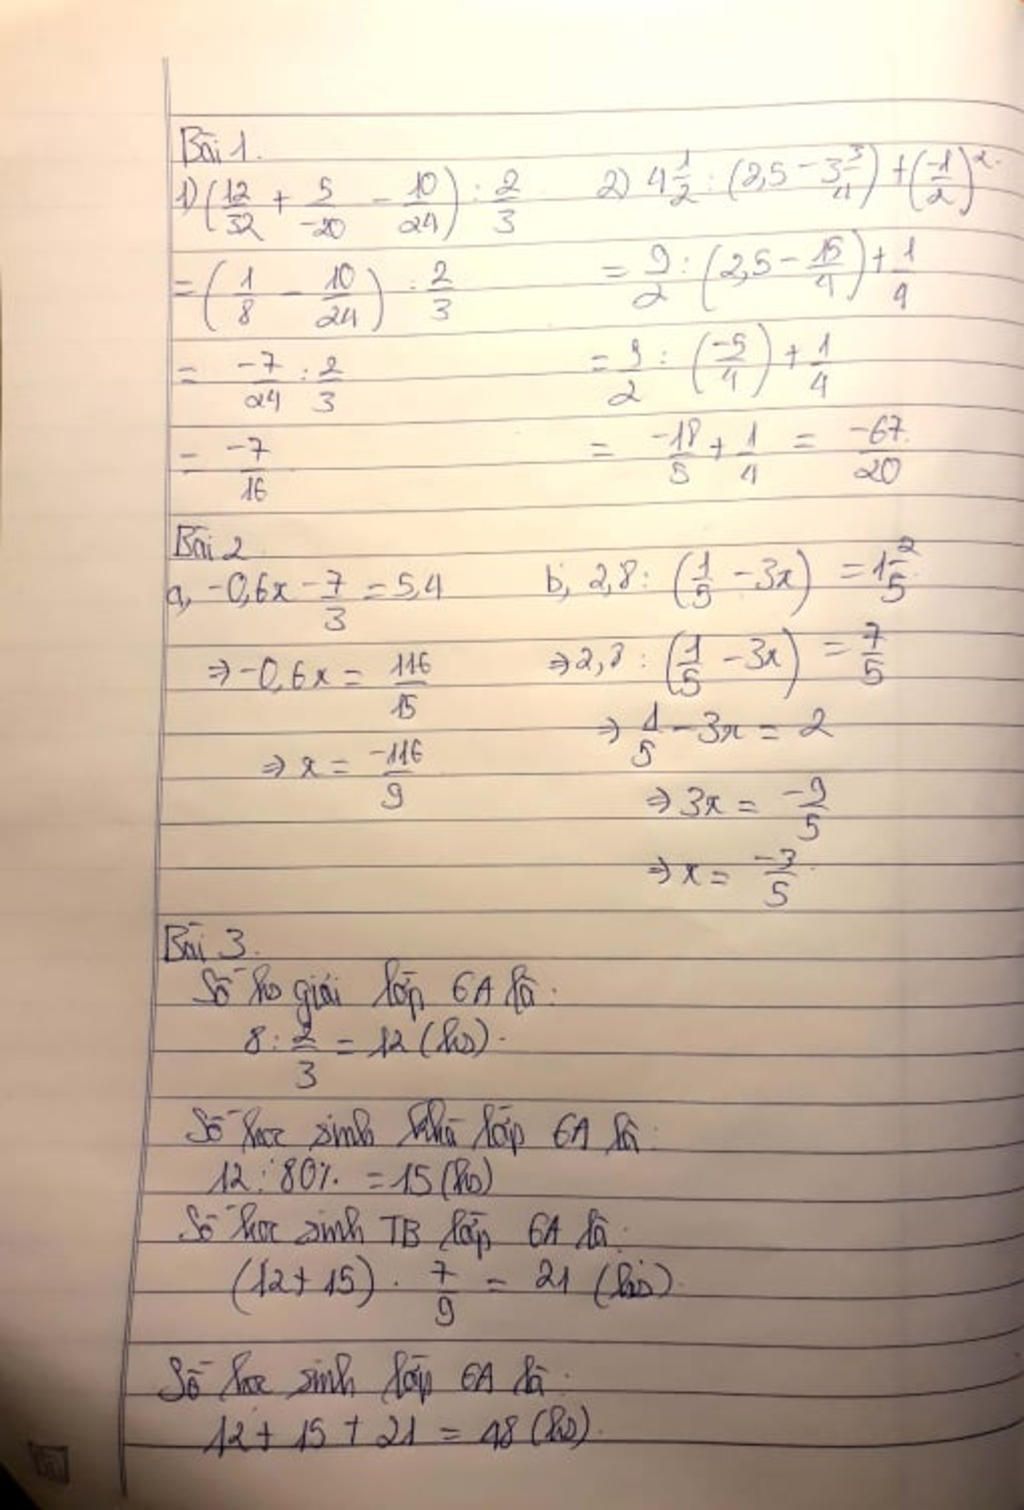 Bài 1.
1) (12/32 + 5/-20 - 10/24) : 2/3
= (1/8 - 10/24) : 2/3
= -7/24 : 2/3
= -7/16
2) 4 1/2 : (2,5 - 3 3/4) + (-1/2)^2.
= 9/2 : (2,5 - 15/4) + 1/4
= 9/2 : (-5/4) + 1/4
= -18/5 + 1/4 = -67/20
Bài 2
a, -0,6x - 7/3 = 5,4
⇒ -0,6x = 116/15
⇒ x = -116/9
b, 2,8 : (1/5 - 3x) = 1 2/5
⇒ 2,8 : (1/5 - 3x) = 7/5
⇒ 1/5 - 3x = 2
⇒ 3x = -9/5
⇒ x = -3/5
Bài 3.
Số hs giỏi lớp 6A là:
8 : 2/3 = 12 (hs).
Số học sinh khá lớp 6A là:
12 : 80% = 15 (hs)
Số học sinh TB lớp 6A là:
(12 + 15) . 7/9 = 21 (hs)
Số học sinh lớp 6A là:
12 + 15 + 21 = 48 (hs).